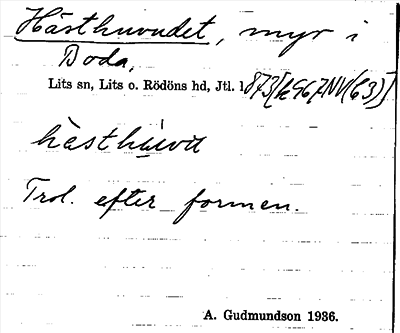 Hästhuvudet, myr i
Boda,
Lits sn, Lits o. Rödöns hd, Jtl. 1873[k 567NV(63)]
hästhu̇vu
Trol. efter formen.
A. Gudmundson 1936.